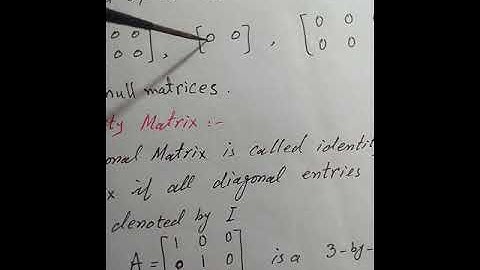 0 0 ] , [ 0 0 ] , [ 0 0
0 0 ] 0 0
null matrices.
Matrix :-
Matrix is called identity
if all diagonal entries
denoted by I
A = [ 1 0 0 ] is a 3-by-
0 1 0